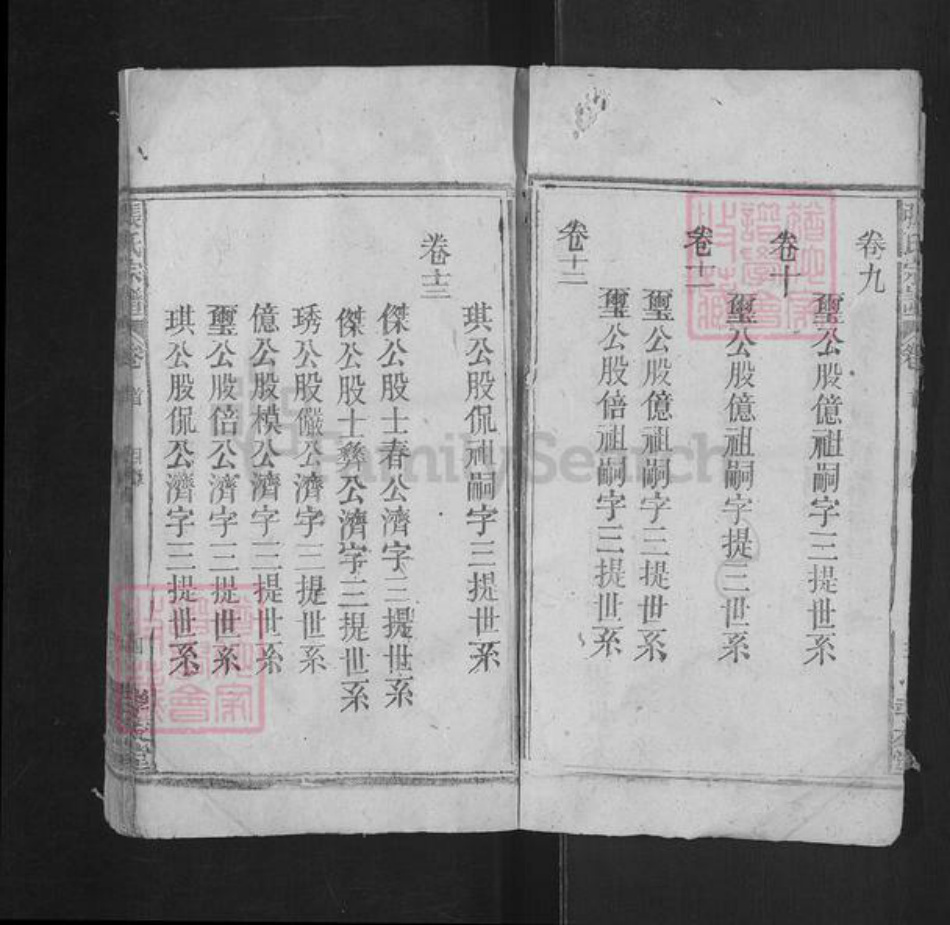 卷九
璽公股億祖嗣字三提世系
卷十
璽公股億祖嗣字提三世系
卷十一
璽公股億祖嗣字三提世系
卷十二
璽公股倍祖嗣字三提世系
琪公股侃祖嗣字三提世系
卷十三
傑公股士春公濟字三提世系
傑公股士彝公濟字三提世系
琇公股儼公濟字三提世系
億公股模公濟字三提世系
璽公股倍公濟字三提世系
琪公股侃公濟字三提世系
張氏宗譜
卷首
目錄
FamilySearch